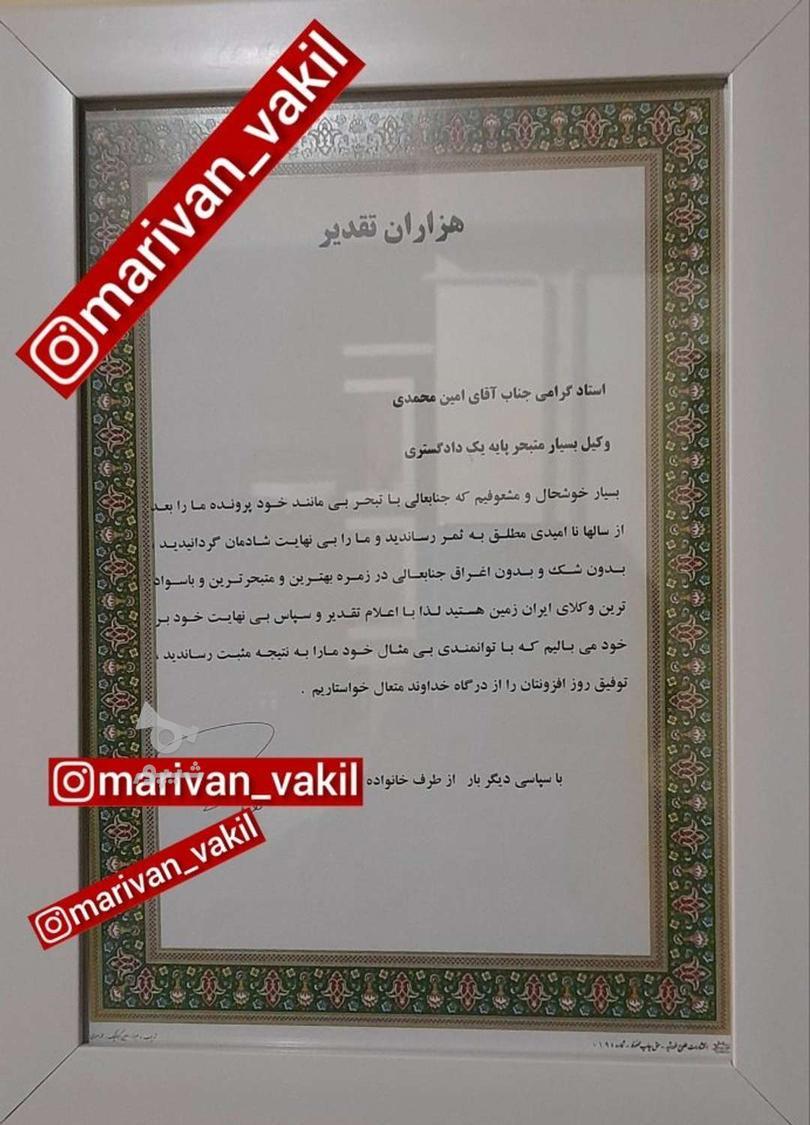 marivan_vakil
هزاران تقدیر
استاد گرامی جناب آقای امین محمدی
وکیل بسیار متبحر پایه یک دادگستری
بسیار خوشحال و مشعوفیم که جنابعالی با تبحر بی مانند خود پرونده ما را بعد
از سالها نا امیدی مطلق به ثمر رساندید و ما را بی نهایت شادمان گردانیدید ،
بدون شک و بدون اغراق جنابعالی در زمره بهترین و متبحرترین و باسواد
ترین وکلای ایران زمین هستید لذا با اعلام تقدیر و سپاس بی نهایت خود بر
خود می بالیم که با توانمندی بی مثال خود مارا به نتیجه مثبت رساندید ،
توفیق روز افزونتان را از درگاه خداوند متعال خواستاریم .
با سپاسی دیگر بار از طرف خانواده
marivan_vakil
شیپور
marivan_vakil